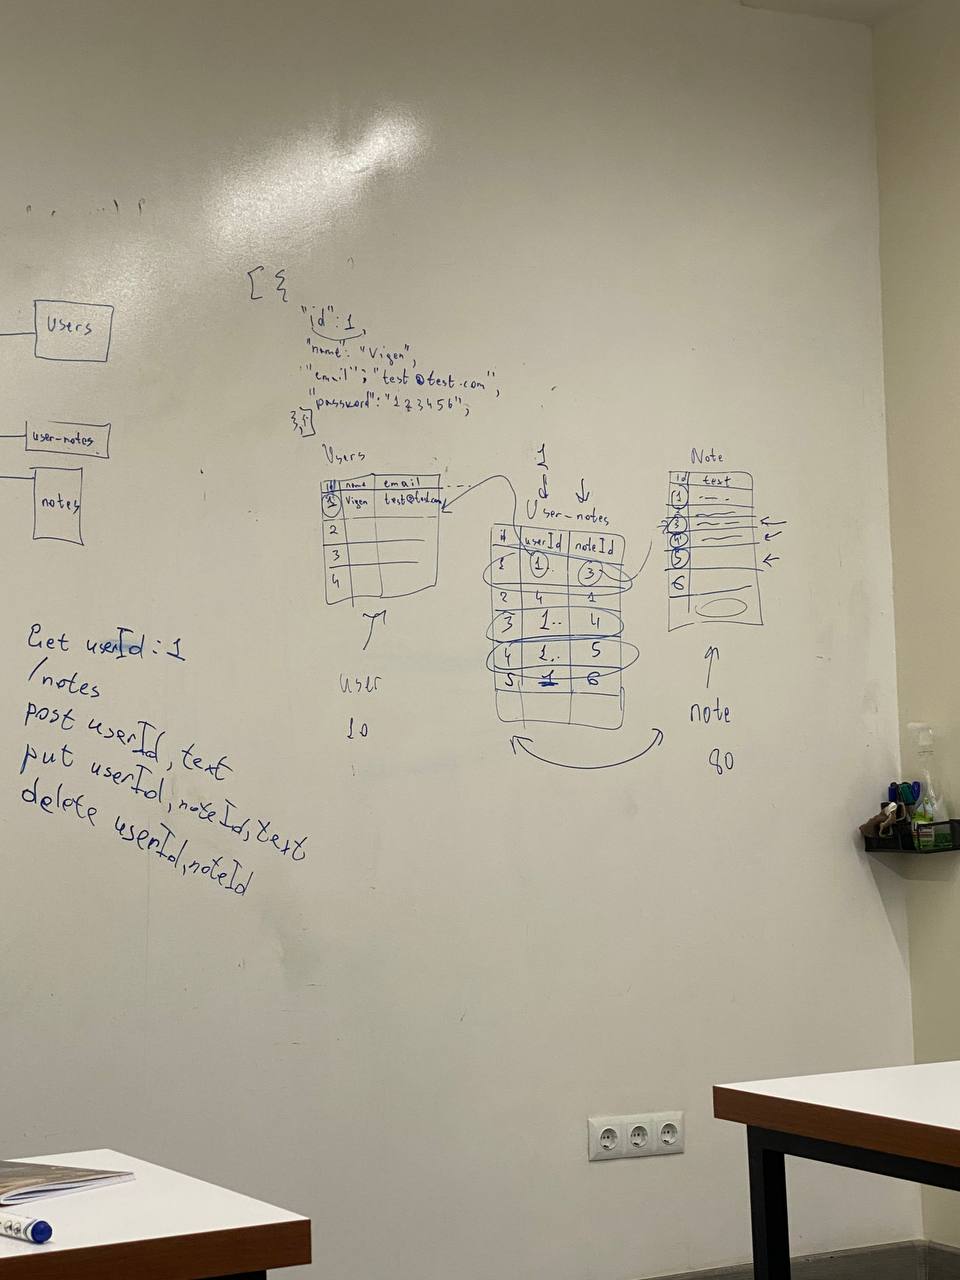 Users
user-notes
notes
[ {
"id": 1,
"name": "Vigen",
"email"; "test@test.com";
"password": "123456";
},]
Users
id name email
1 Vigen test@test.com
2
3
4
user
10
1
User-notes
id userId noteId
1 1.. 3
2 4 1
3 1.. 4
4 1.. 5
5 1 6
Note
id text
1
2
3
4
5
6
note
80
Get userId:1
/notes
post userId, text
put userId, noteId, text
delete userId, noteId